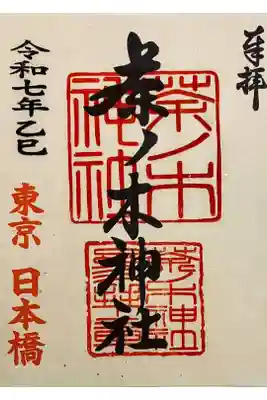 奉拝
茶ノ木神社
茶ノ木
神社
令和七年乙巳
東京 日本橋